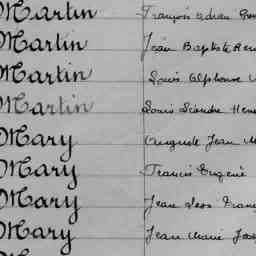 Martin François Adrien
Martin Jean Baptiste René
Martin Louis Alphonse
Martin Louis Léandre Henri
Mary Auguste Jean M
Mary Francis Eugène
Mary Jean Léon Franç
Mary Jean Marie Jos